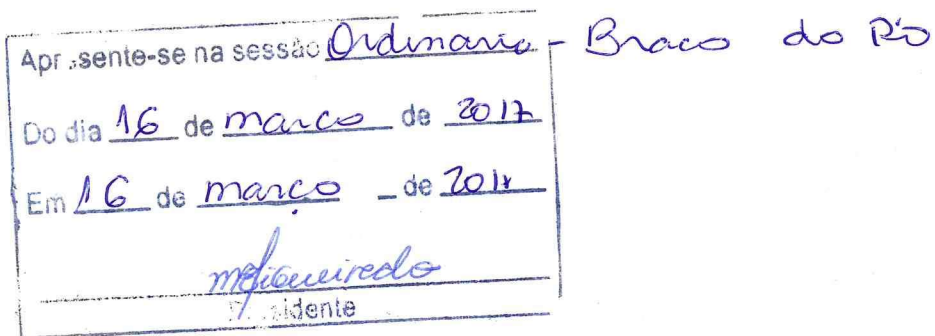 Apresente-se na sessão Ordinaria - Braco do Rio
Do dia 16 de março de 2017
Em 16 de março de 2017
mfigueiredo
Presidente